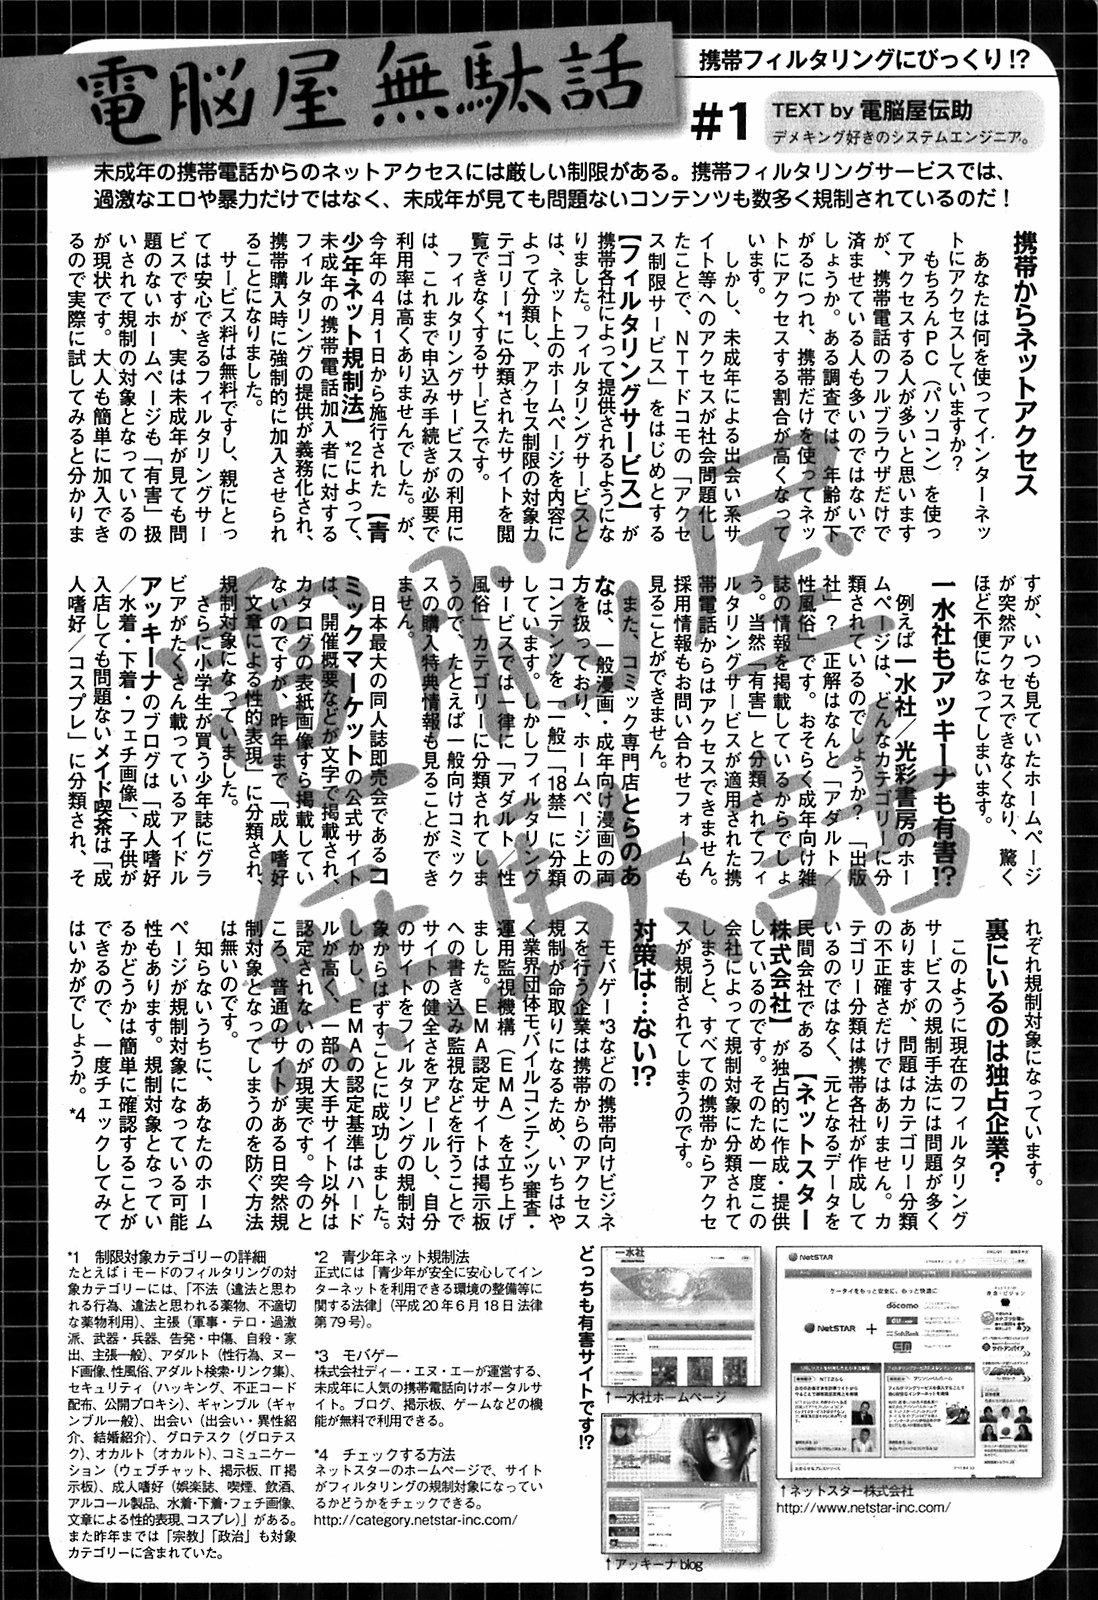 電脳屋無駄話
携帯フィルタリングにびっくり!?
#1
TEXT by 電脳屋伝助
デメキング好きのシステムエンジニア。
未成年の携帯電話からのネットアクセスには厳しい制限がある。携帯フィルタリングサービスでは、
過激なエロや暴力だけではなく、未成年が見ても問題ないコンテンツも数多く規制されているのだ!
携帯からネットアクセス
あなたは何を使ってインターネッ
トにアクセスしていますか?
もちろんPC(パソコン)を使っ
てアクセスする人が多いと思います
が、携帯電話のフルブラウザだけで
済ませている人も多いのではないで
しょうか。ある調査では、年齢が下
がるにつれ、携帯だけを使ってネッ
トにアクセスする割合が高くなって
います。
しかし、未成年による出会い系サ
イト等へのアクセスが社会問題化し
たことで、NTTドコモの「アクセ
ス制限サービス」をはじめとする
【フィルタリングサービス】が
携帯各社によって提供されるようにな
りました。フィルタリングサービスと
は、ネット上のホームページを内容に
よって分類し、アクセス制限の対象カ
テゴリー*1に分類されたサイトを閲
覧できなくするサービスです。
フィルタリングサービスの利用に
は、これまで申込み手続きが必要で
利用率は高くありませんでした。が、
今年の4月1日から施行された【青
少年ネット規制法】*2によって、
未成年の携帯電話加入者に対する
フィルタリングの提供が義務化され、
携帯購入時に強制的に加入させられ
ることになりました。
サービス料は無料ですし、親にとっ
ては安心できるフィルタリングサー
ビスですが、実は未成年が見ても問
題のないホームページも「有害」扱
いされて規制の対象となっているの
が現状です。大人も簡単に加入でき
るので実際に試してみると分かりま
すが、いつも見ていたホームページ
が突然アクセスできなくなり、驚く
ほど不便になってしまいます。
一水社もアッキーナも有害!?
例えば一水社/光彩書房のホー
ムページは、どんなカテゴリーに分
類されているのでしょうか?「出版
社」?正解はなんと「アダルト/
性風俗」です。おそらく成年向け雑
誌の情報を掲載しているからでしょ
う。当然「有害」と分類されてフィ
ルタリングサービスが適用された携
帯電話からはアクセスできません。
採用情報もお問い合わせフォームも
見ることができません。
また、コミック専門店とらのあ
なは、一般漫画・成年向け漫画の両
方を扱っており、ホームページ上の
コンテンツを「一般」「18禁」に分類
しています。しかしフィルタリング
サービスでは一律に「アダルト/性
風俗」カテゴリーに分類されてしま
うので、たとえば一般向けコミック
スの購入特典情報も見ることができ
ません。
日本最大の同人誌即売会であるコ
ミックマーケットの公式サイト
は、開催概要などが文字で掲載され、
カタログの表紙画像すら掲載してい
ないのですが、昨年まで「成人嗜好
/文章による性的表現」に分類され、
規制対象になっていました。
さらに小学生が買う少年誌にグラ
ビアがたくさん載っているアイドル
アッキーナのブログは「成人嗜好
/水着・下着・フェチ画像」、子供が
入店しても問題ないメイド喫茶は「成
人嗜好/コスプレ」に分類され、そ
れぞれ規制対象になっています。
裏にいるのは独占企業?
このように現在のフィルタリング
サービスの規制手法には問題が多く
ありますが、問題はカテゴリー分類
の不正確さだけではありません。カ
テゴリー分類は携帯各社が作成して
いるのではなく、元となるデータを
民間会社である【ネットスター
株式会社】が独占的に作成・提供
しているのです。そのため一度この
会社によって規制対象に分類されて
しまうと、すべての携帯からアクセ
スが規制されてしまうのです。
対策は…ない!?
モバゲー*3などの携帯向けビジネ
スを行う企業は携帯からのアクセス
規制が命取りになるため、いちはや
く業界団体モバイルコンテンツ審査・
運用監視機構(EMA)を立ち上げ
ました。EMA認定サイトは掲示板
への書き込み監視などを行うことで
サイトの健全さをアピールし、自分
のサイトをフィルタリングの規制対
象からはずすことに成功しました。
しかし、EMAの認定基準はハード
ルが高く、一部の大手サイト以外は
認定されないのが現実です。今のと
ころ、普通のサイトがある日突然規
制対象となってしまうのを防ぐ方法
は無いのです。
知らないうちに、あなたのホーム
ページが規制対象になっている可能
性もあります。規制対象となってい
るかどうかは簡単に確認することが
できるので、一度チェックしてみて
はいかがでしょうか。*4
電脳屋
無駄話
*1 制限対象カテゴリーの詳細
たとえばiモードのフィルタリングの対
象カテゴリーには、「不法(違法と思わ
れる行為、違法と思われる薬物、不適切
な薬物利用)、主張(軍事・テロ・過激
派、武器・兵器、告発・中傷、自殺・家
出、主張一般)、アダルト(性行為、ヌー
ド画像、性風俗、アダルト検索・リンク集)、
セキュリティ(ハッキング、不正コード
配布、公開プロキシ)、ギャンブル(ギャ
ンブル一般)、出会い(出会い・異性紹
介、結婚紹介)、グロテスク(グロテス
ク)、オカルト(オカルト)、コミュニケー
ション(ウェブチャット、掲示板、IT掲
示板)、成人嗜好(娯楽誌、喫煙、飲酒、
アルコール製品、水着・下着・フェチ画像、
文章による性的表現、コスプレ)」がある。
また昨年までは「宗教」「政治」も対象
カテゴリーに含まれていた。
*2 青少年ネット規制法
正式には「青少年が安全に安心してイン
ターネットを利用できる環境の整備等に
関する法律」(平成20年6月18日法律
第79号)。
*3 モバゲー
株式会社ディー・エヌ・エーが運営する、
未成年に人気の携帯電話向けポータルサ
イト。ブログ、掲示板、ゲームなどの機
能が無料で利用できる。
*4 チェックする方法
ネットスターのホームページで、サイト
がフィルタリングの規制対象になってい
るかどうかをチェックできる。
http://category.netstar-inc.com/
どっちも有害サイトです!?
一水社
↑一水社ホームページ
↑アッキーナblog
NetSTAR
ケータイをもっと安全に、もっと快適に
docomo
NetSTAR
+
SoftBank
↑ネットスター株式会社
http://www.netstar-inc.com/